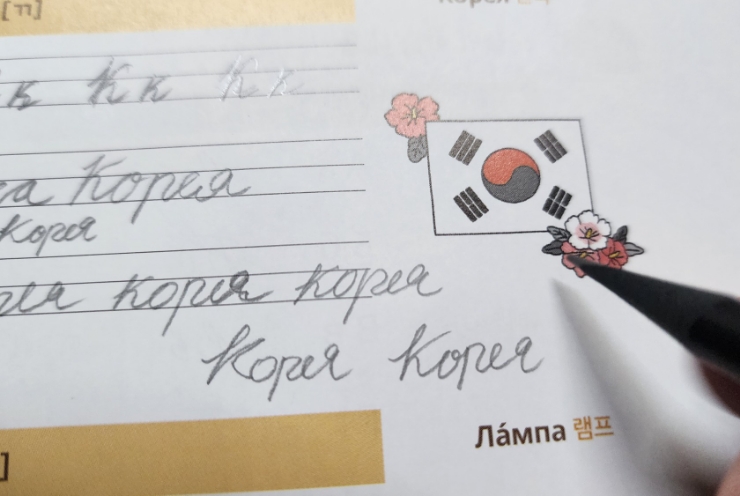 [ㄲ]
к К к К к
Корея
Корея
Корея Корея
Корея Корея
Ла́мпа 램프
]